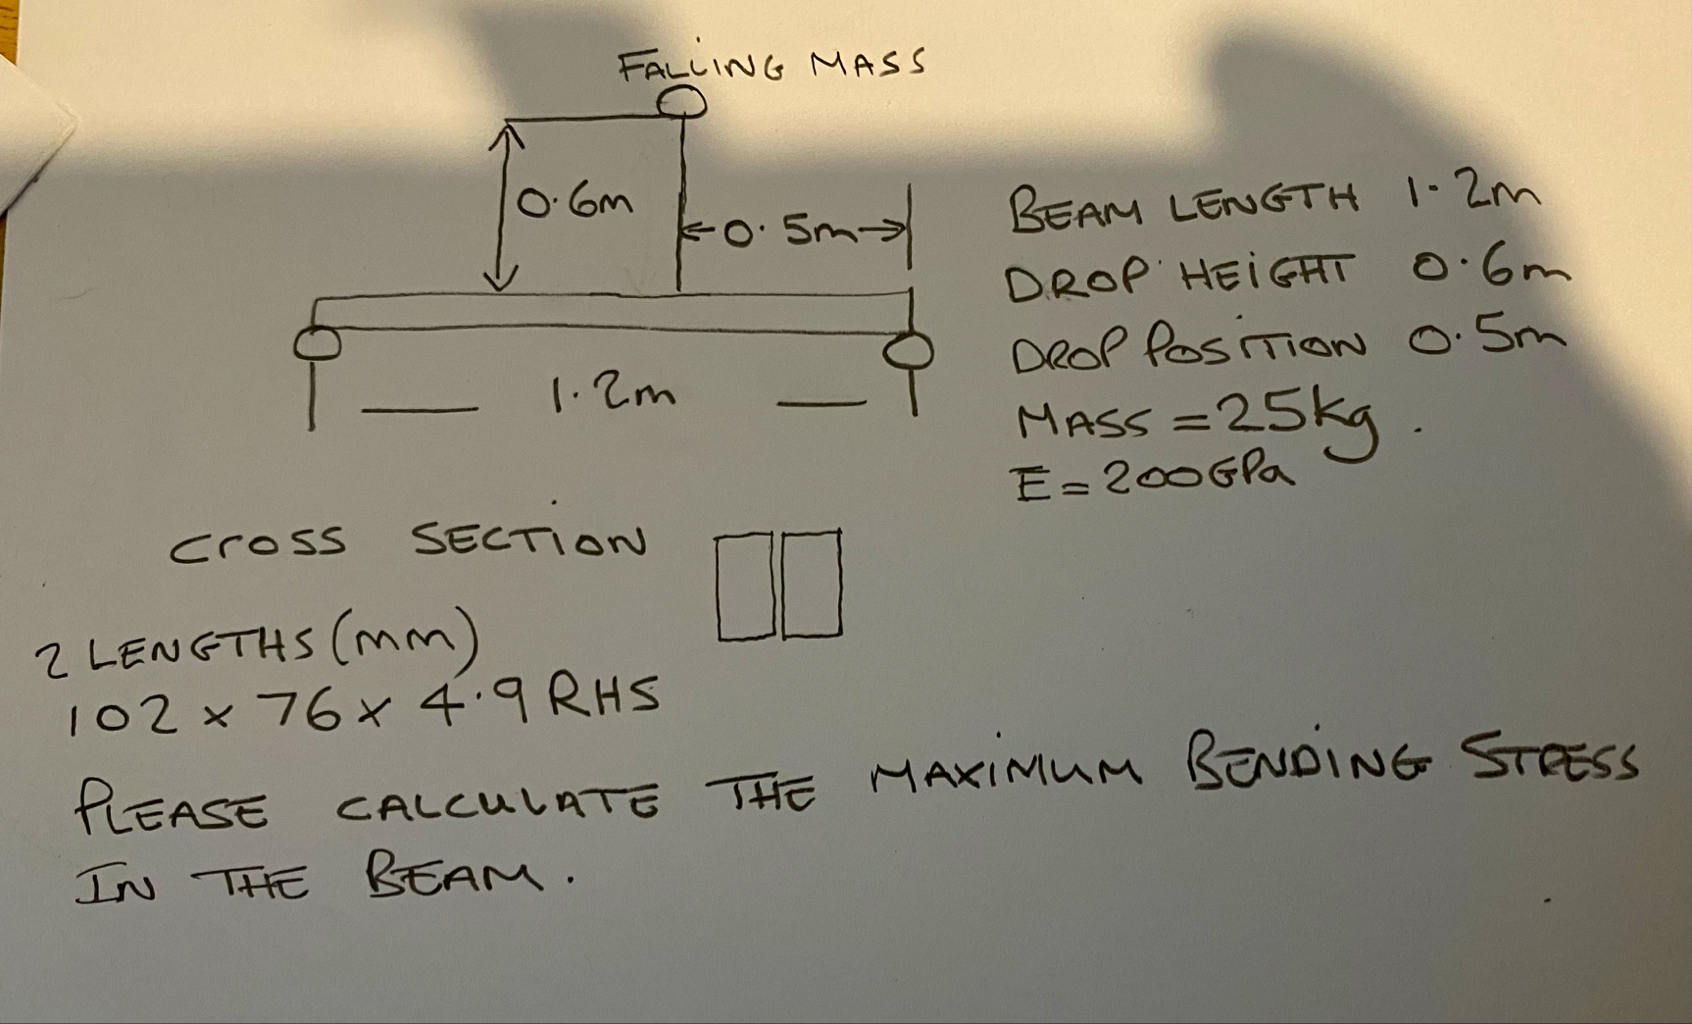 FALLING MASS
0.6m
0.5m
1.2m
BEAM LENGTH 1.2m
DROP HEIGHT 0.6m
DROP POSITION 0.5m
MASS = 25kg.
E = 200GPa
CROSS SECTION
2 LENGTHS (mm)
102 x 76 x 4.9 RHS
PLEASE CALCULATE THE MAXIMUM BENDING STRESS
IN THE BEAM.